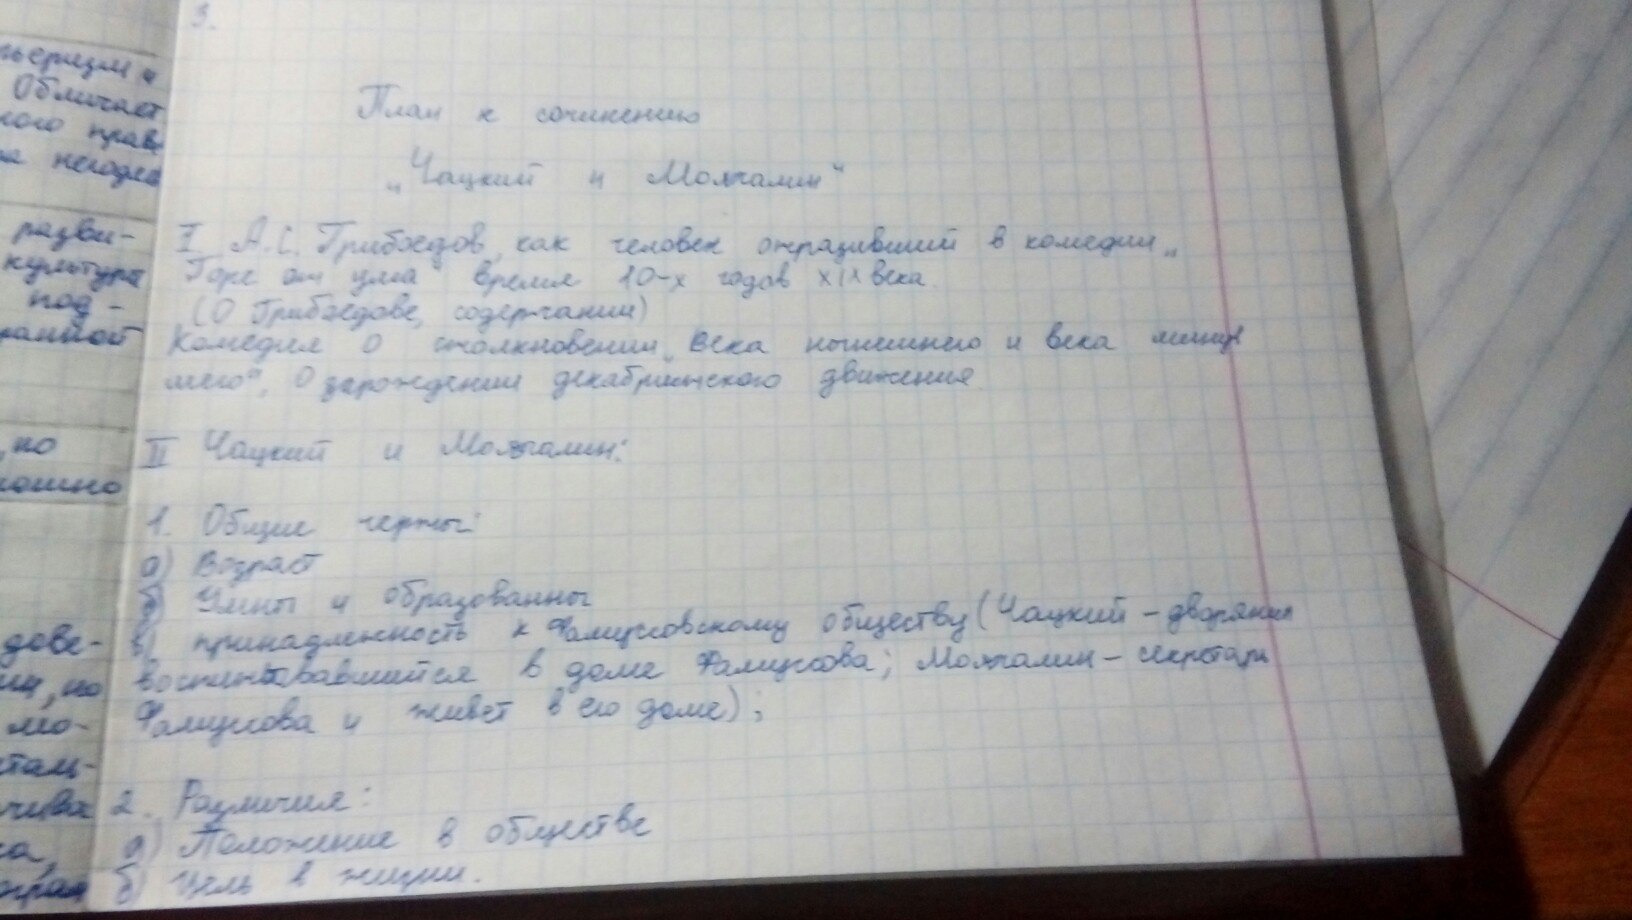 3.
План к сочинению
„Чацкий и Молчалин“
I А.С. Грибоедов, как человек отразивший в комедии „
Горе от ума“ время 10-х годов XIX века.
(О Грибоедове, содержании)
Комедия о столкновении „века нынешнего и века минув
шего“, о зарождении декабристского движения.
II Чацкий и Молчалин:
1. Общие черты:
а) Возраст
б) Умны и образованны
в) принадлежность к Фамусовскому обществу (Чацкий – дворянин
воспитывавшийся в доме Фамусова; Молчалин – секретарь
Фамусова и живет в его доме);
2. Различия:
а) Положение в обществе
б) Цель в жизни.
Обличает
ного прав
разви-
культура
под-
,но
дове-
мо-